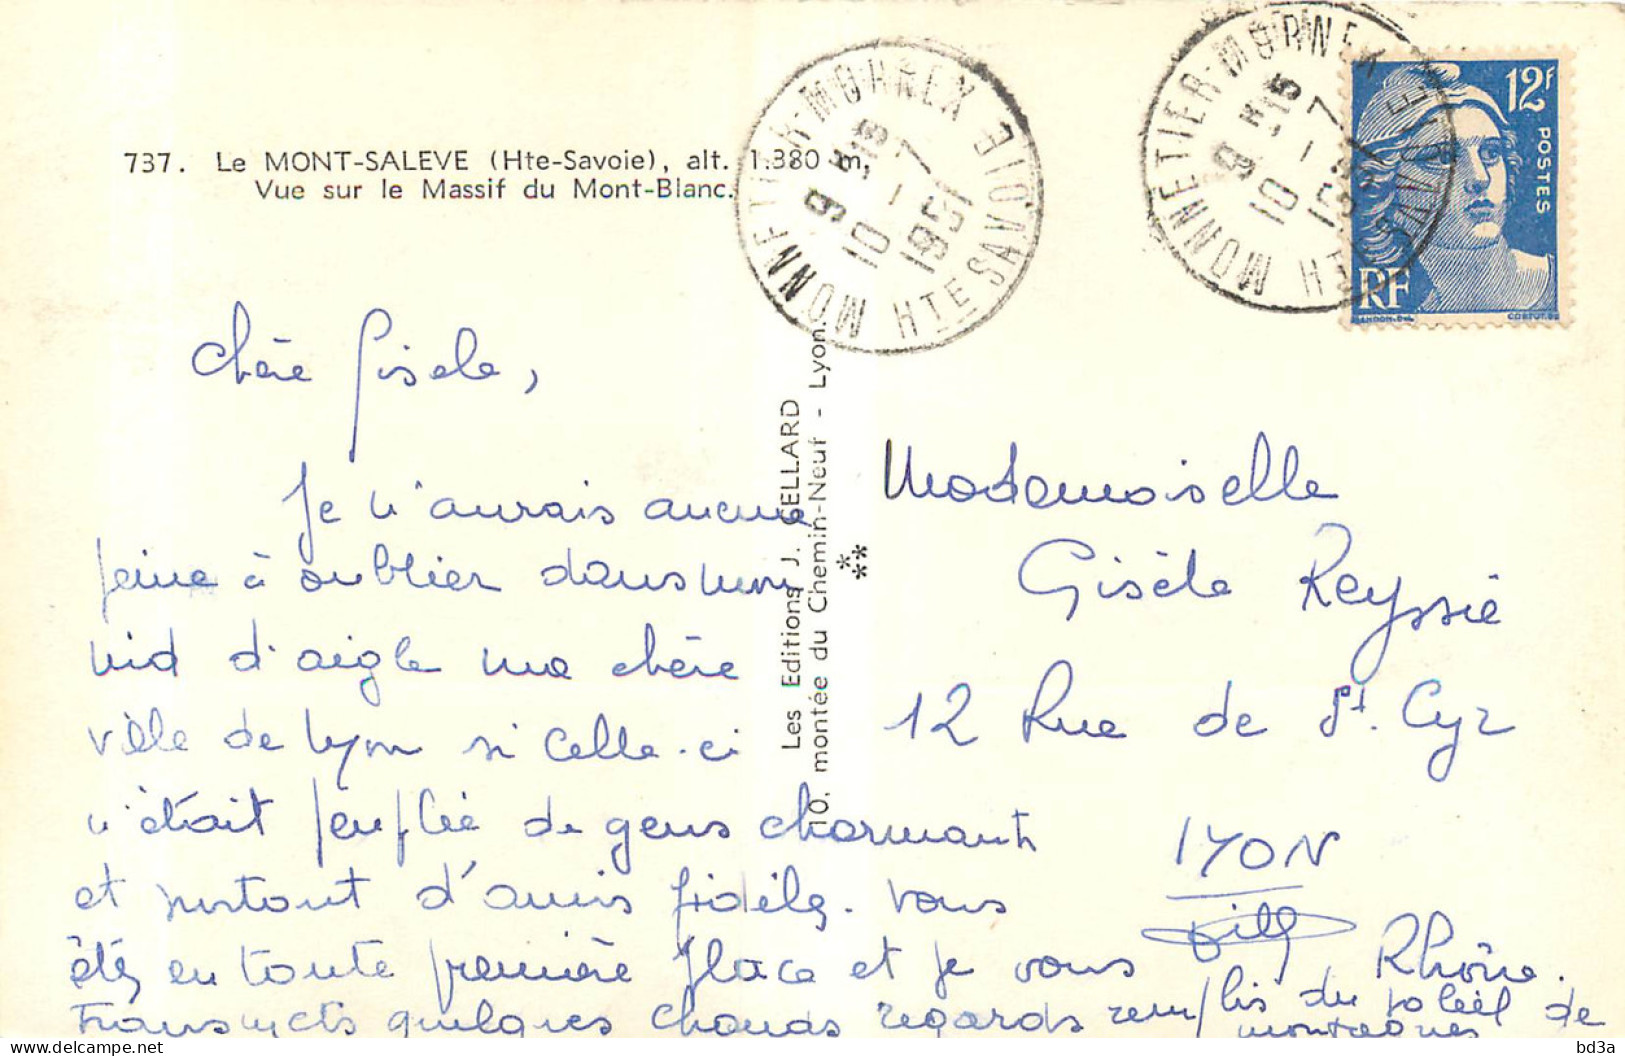 737. Le MONT-SALEVE (Hte-Savoie), alt. 1.380 m,
Vue sur le Massif du Mont-Blanc.
MONNETIER-MORNEX
HTE SAVOIE
9 H 15
10 - 7
1951
MONNETIER-MORNEX
HTE SAVOIE
9 H 15
10 - 7
1951
12F
POSTES
RF
GANDON.DEL
CORTOT.SC
Les Editions J. SELLARD
10. montée du Chemin-Neuf - Lyon.
Chère Gisèle,
Je n'aurais aucune
peine à oublier dans mon
nid d'aigle ma chère
ville de Lyon si celle-ci
n'était peuplée de gens charmants
et surtout d'amis fidèles. Vous
êtes en toute première place et je vous
transmets quelques chauds regards remplis du soleil de
montagnes
Mademoiselle
Gisèle Reyssié
12 Rue de St. Cyr
LYON
Rhône.
bd3a